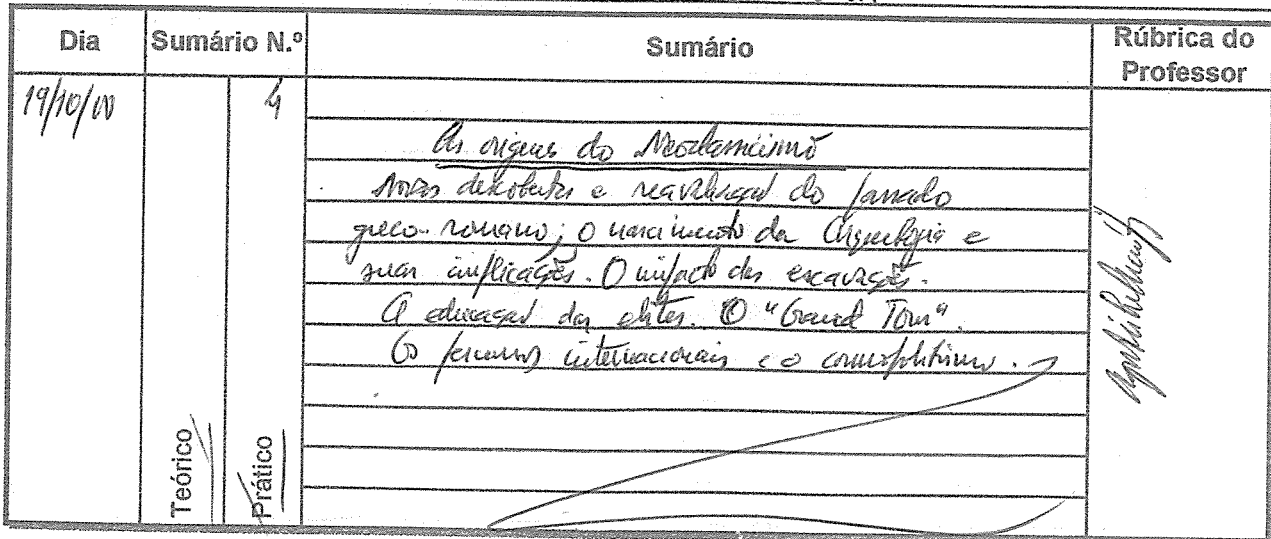 Dia Sumário N.º Sumário Rúbrica do Professor
19/10/00 4
As origens do Neoclassicismo
Novas descobertas e reavaliação do passado
greco-romano; O nascimento da Arqueologia e
suas implicações. O impacto das escavações.
A educação das elites. O "Grand Tour".
Os percursos internacionais e o cosmopolitismo.
Teórico Prático